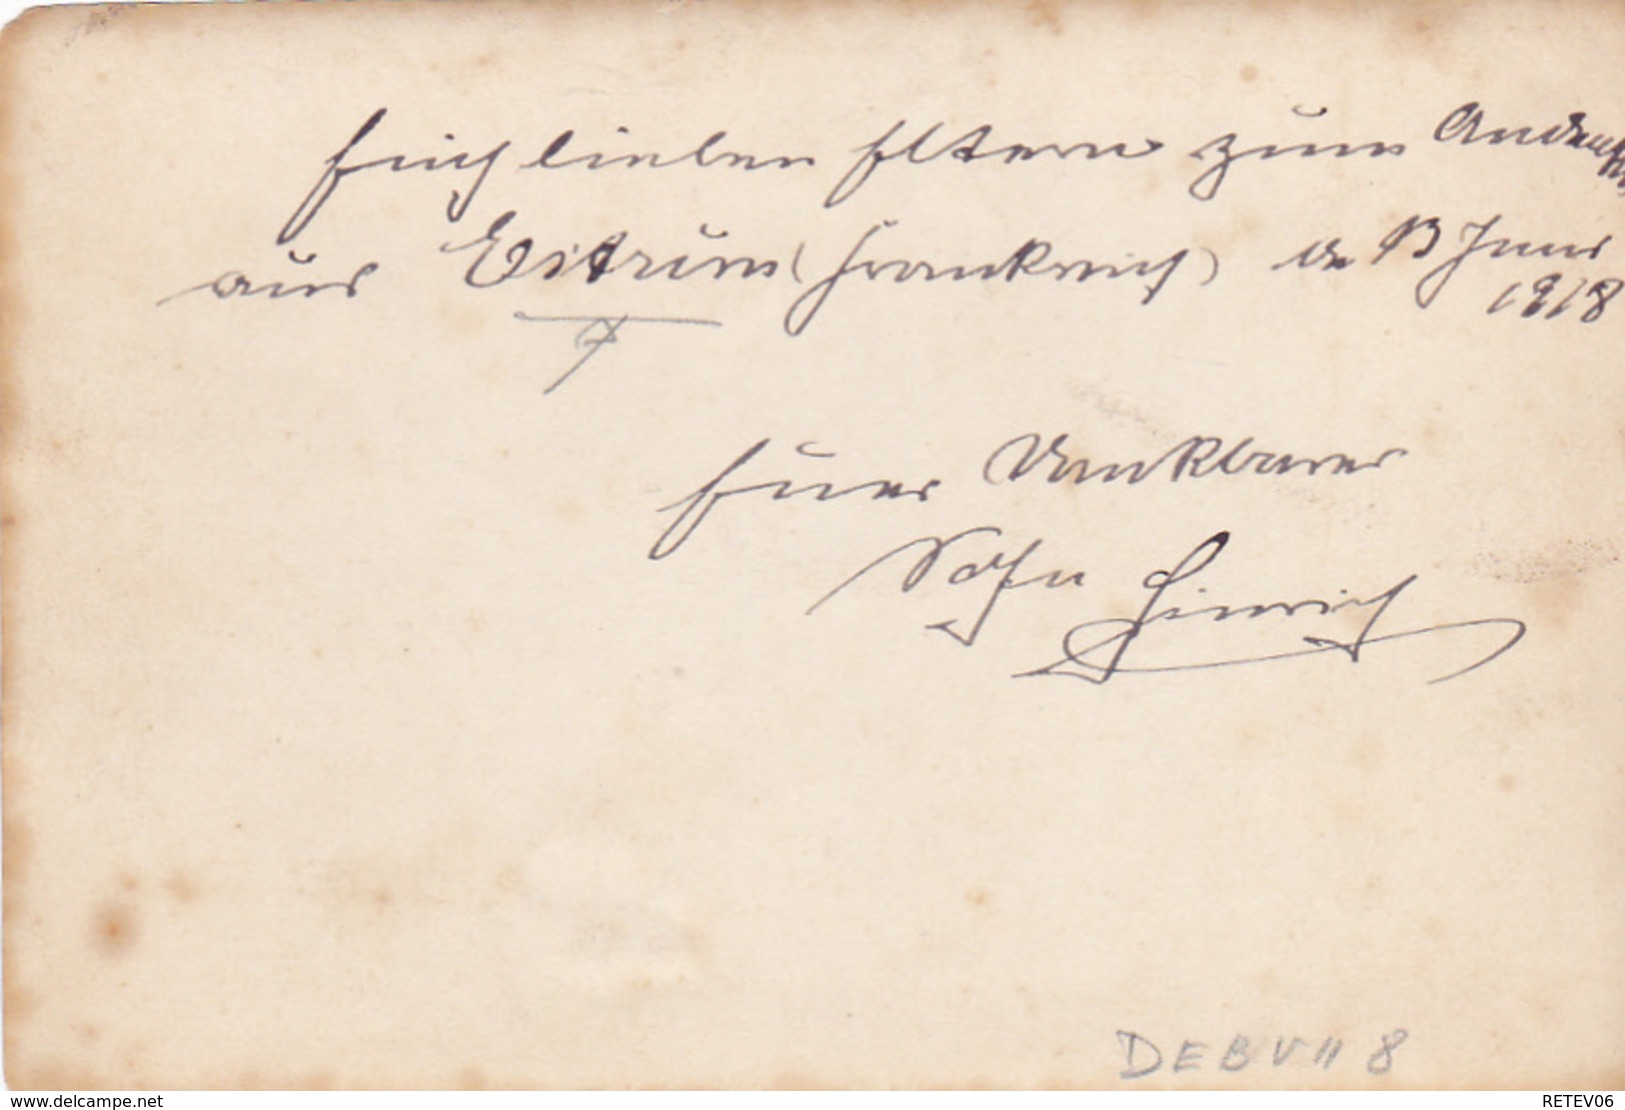 Euch lieben Eltern zum Andenken
aus Estrun (Frankreich) de 13 Juni
1918
Euer Dankbarer
Sohn Hinrich
DEBV11 8
delcampe.net
RETEV06